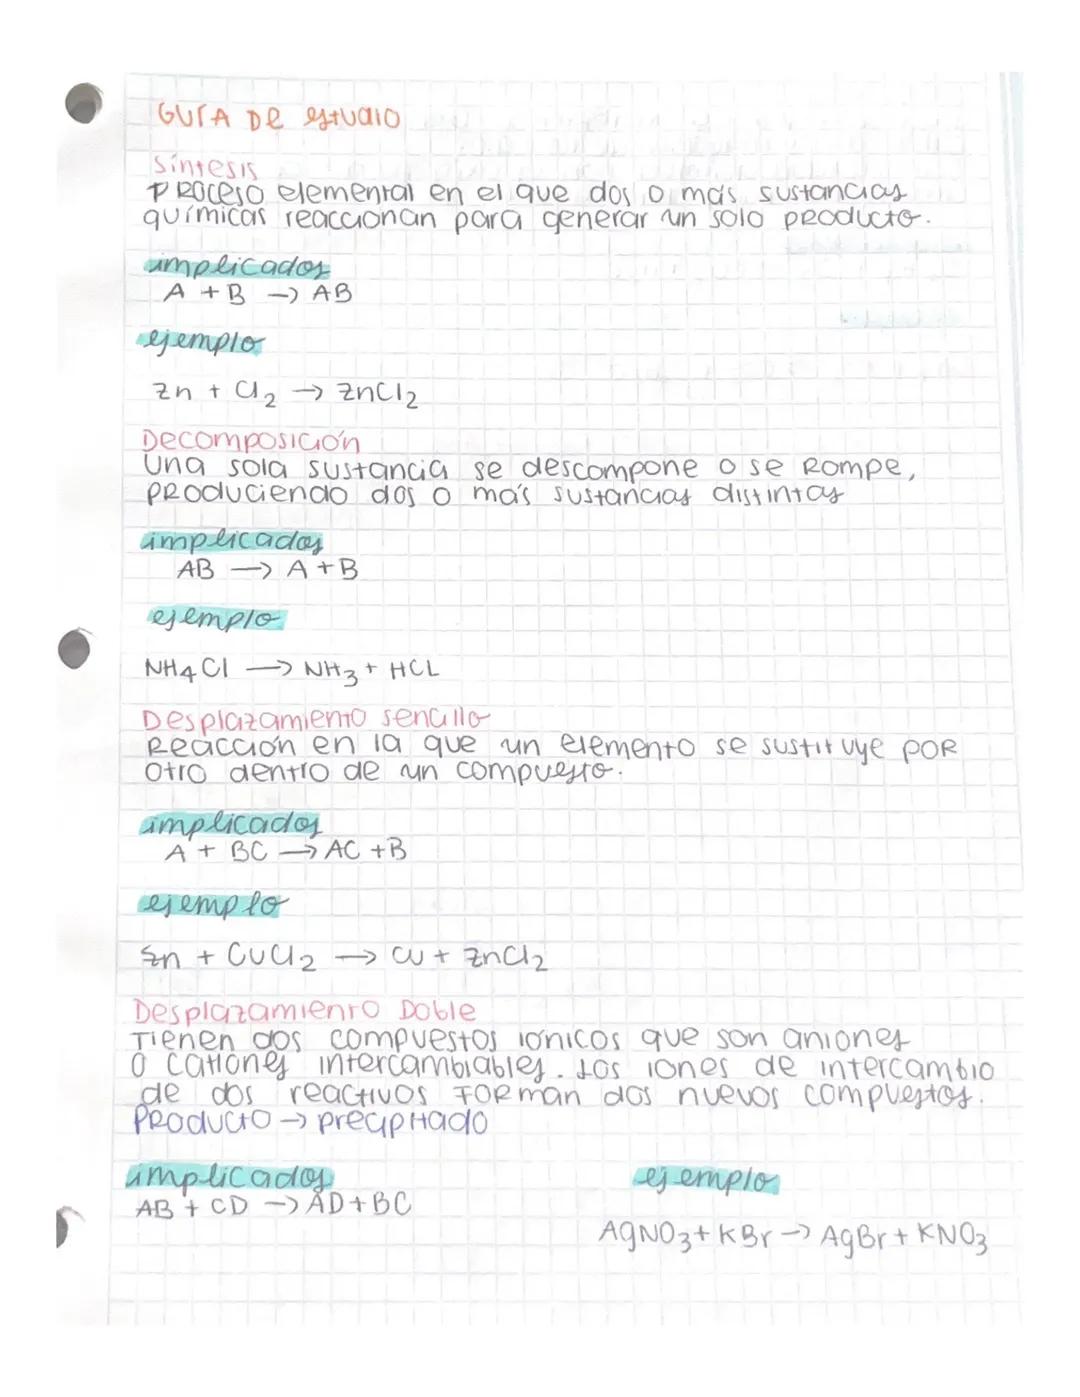 GUÍA DE estudio
Síntesis
PROCESO elemental en el que dos o más sustancias
químicas reaccionan para generar un solo producto.
implicados
A + B → AB
ejemplo
Zn + Cl₂ → ZnCl₂
Decomposición
Una sola sustancia se descompone o se Rompe,
produciendo dos o más sustancias distintas
implicados
AB → A + B
ejemplo
NH₄Cl → NH₃ + HCL
Desplazamiento sencillo
Reacción en la que un elemento se sustituye por
otro dentro de un compuesto.
implicados
A + BC → AC + B
ejemplo
Zn + CuCl₂ → Cu + ZnCl₂
Desplazamiento Doble
Tienen dos compuestos iónicos que son aniones
o cationes intercambiables. Los iones de intercambio
de dos reactivos forman dos nuevos compuestos.
Producto → precipitado
implicados
AB + CD → AD + BC
ejemplo
AgNO₃ + KBr → AgBr + KNO₃